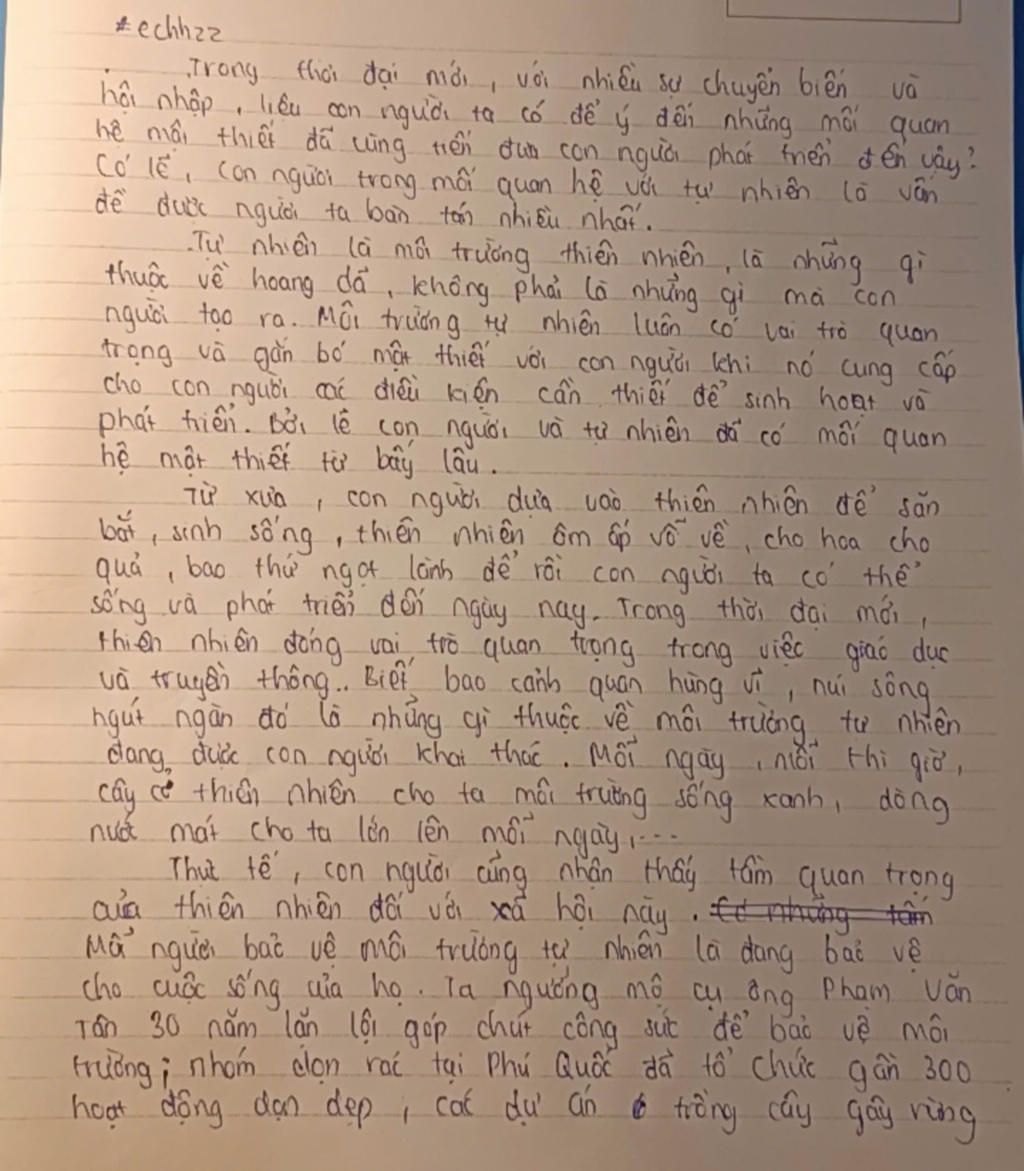 *echhzz
Trong thời đại mới, với nhiều sự chuyển biến và
hội nhập, liệu con người ta có để ý đến những mối quan
hệ mối thiết đã cùng tiến đưa con người phát triển đến vậy?
Có lẽ, con người trong mối quan hệ với tự nhiên là vấn
đề được người ta bàn tán nhiều nhất.
Tự nhiên là môi trường thiên nhiên, là những gì
thuộc về hoang dã, không phải là những gì mà con
người tạo ra. Môi trường tự nhiên luôn có vai trò quan
trọng và gắn bó mật thiết với con người khi nó cung cấp
cho con người các điều kiện cần thiết để sinh hoạt và
phát triển. Bởi lẽ con người và tự nhiên đã có mối quan
hệ mật thiết từ bấy lâu.
Từ xưa, con người dựa vào thiên nhiên để săn
bắt, sinh sống, thiên nhiên ôm ấp vỗ về, cho hoa cho
quả, bao thứ ngọt lành để rồi con người ta có thể
sống và phát triển đến ngày nay. Trong thời đại mới,
thiên nhiên đóng vai trò quan trọng trong việc giáo dục
và truyền thông.. Biết bao cảnh quan hùng vĩ, núi sông
ngút ngàn đó là những gì thuộc về môi trường tự nhiên
đang được con người khai thác. Mỗi ngày, mỗi thì giờ,
cây cỏ thiên nhiên cho ta môi trường sống xanh, dòng
nước mát cho ta lớn lên mỗi ngày,...
Thực tế, con người cũng nhận thấy tầm quan trọng
của thiên nhiên đối với xã hội này. Có những tấm
Mỗi người bảo vệ môi trường tự nhiên là đang bảo vệ
cho cuộc sống của họ. Ta ngưỡng mộ cụ ông Phạm Văn
Tân 30 năm lăn lội góp chút công sức để bảo vệ môi
trường; nhóm dọn rác tại Phú Quốc đã tổ chức gần 300
hoạt động dọn dẹp, các dự án trồng cây gây rừng